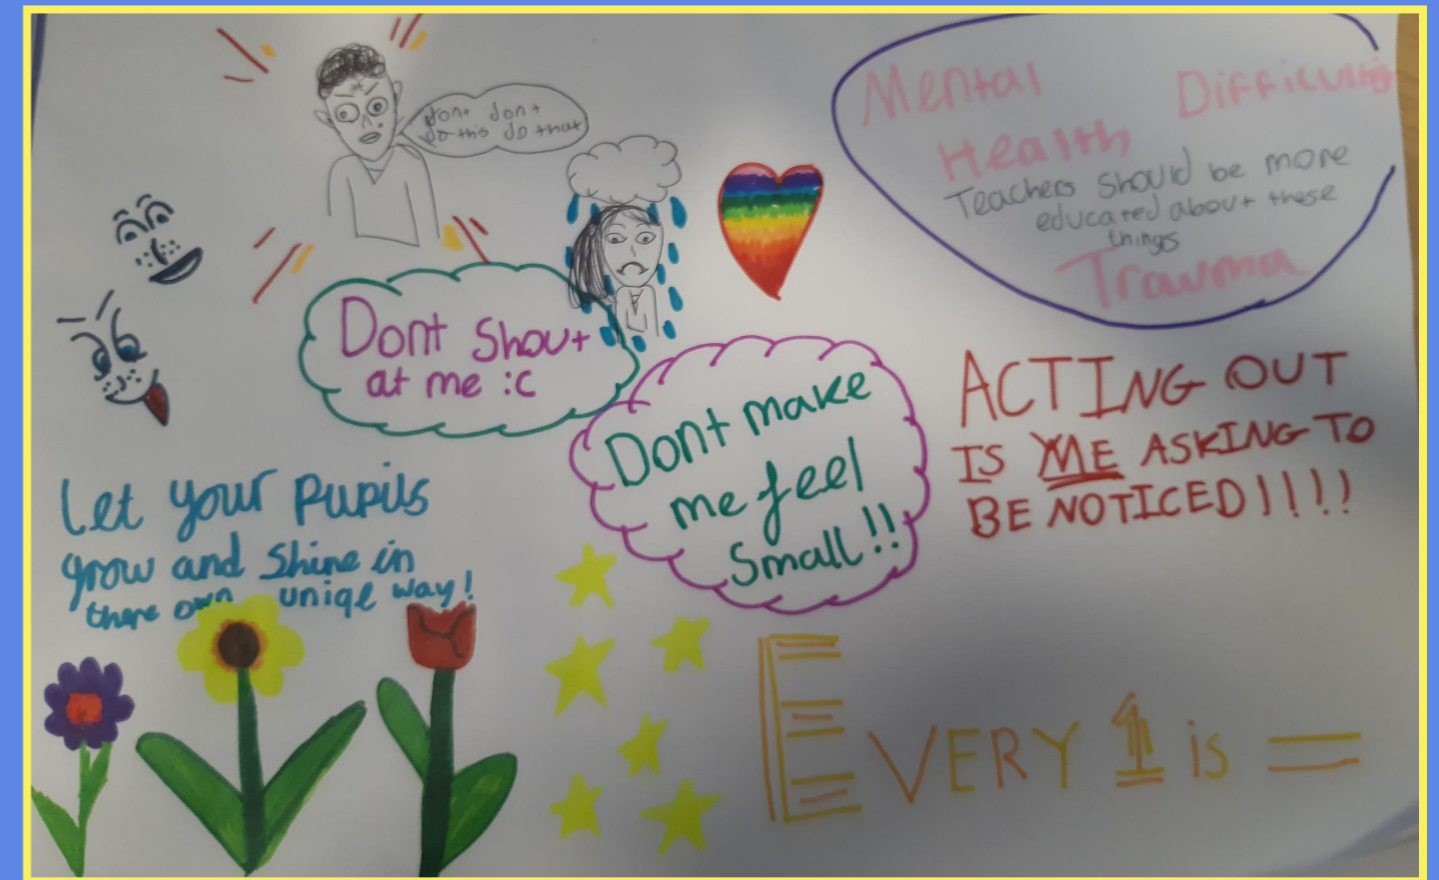 dont don't
do this do that
Mental
Difficulties
Health
Teachers should be more
educated about these
things
Trauma
Dont Shout
at me :c
Dont make
me feel
Small!!
ACTING OUT
IS ME ASKING TO
BE NOTICED!!!!
Let your Pupils
grow and Shine in
there own uniqe way!
EVERY 1 is =